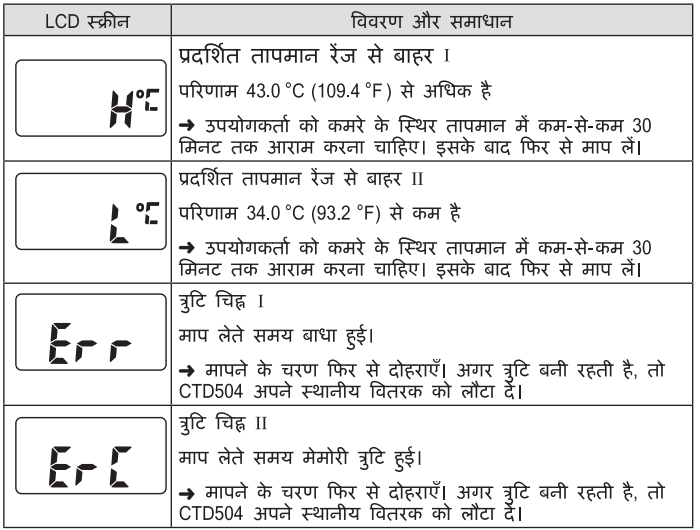 LCD स्क्रीन
विवरण और समाधान
H°C
प्रदर्शित तापमान रेंज से बाहर I
परिणाम 43.0 °C (109.4 °F) से अधिक है
➔ उपयोगकर्ता को कमरे के स्थिर तापमान में कम-से-कम 30
मिनट तक आराम करना चाहिए। इसके बाद फिर से माप लें।
L°C
प्रदर्शित तापमान रेंज से बाहर II
परिणाम 34.0 °C (93.2 °F) से कम है
➔ उपयोगकर्ता को कमरे के स्थिर तापमान में कम-से-कम 30
मिनट तक आराम करना चाहिए। इसके बाद फिर से माप लें।
Err
त्रुटि चिह्न I
माप लेते समय बाधा हुई।
➔ मापने के चरण फिर से दोहराएँ। अगर त्रुटि बनी रहती है, तो
CTD504 अपने स्थानीय वितरक को लौटा दें।
ErC
त्रुटि चिह्न II
माप लेते समय मेमोरी त्रुटि हुई।
➔ मापने के चरण फिर से दोहराएँ। अगर त्रुटि बनी रहती है, तो
CTD504 अपने स्थानीय वितरक को लौटा दें।